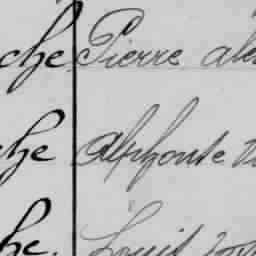 che Pierre ale
che Alphonse
he. Louis